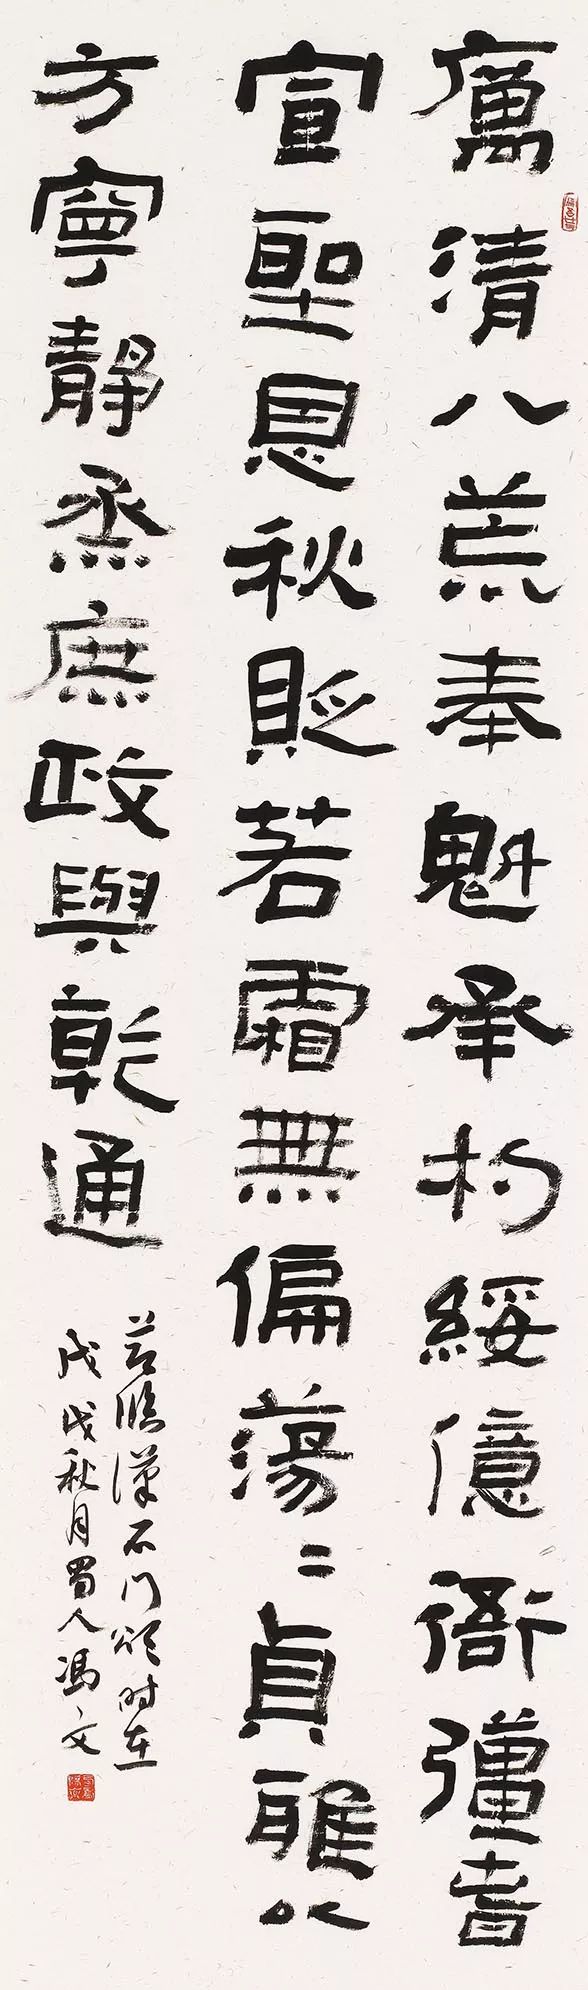 厲清八荒奉魁承杓綏億衙彊春
宣聖恩秋貶若霜無偏蕩〻貞雅以
方寧靜烝庶政與乾通
节临漢石门颂时在
戊戌秋月蜀人冯文